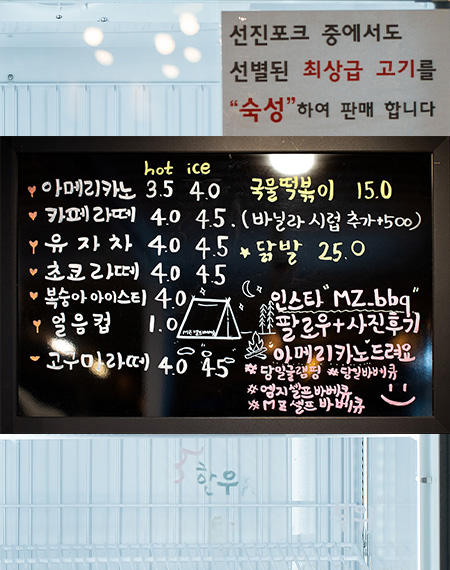 선진포크 중에서도
선별된 최상급 고기를
“숙성”하여 판매 합니다
hot ice
아메리카노 3.5 4.0
카페라떼 4.0 4.5 . (바닐라 시럽 추가+500)
유자차 4.0 4.5
초코라떼 4.0 4.5
복숭아 아이스티 4.0
얼음컵 1.0
고구마라떼 4.0 4.5
국물떡볶이 15.0
닭발 25.0
인스타"MZ.bbq"
팔로우+사진후기
아메리카노드려요
#당일글램핑 #당일바베큐
#명지셀프바베큐
#MZ셀프바베큐
한우